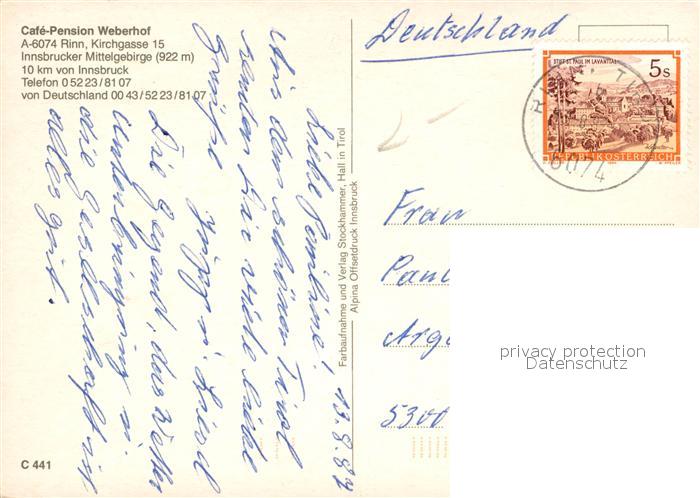 Café-Pension Weberhof
A-6074 Rinn, Kirchgasse 15
Innsbrucker Mittelgebirge (922 m)
10 km von Innsbruck
Telefon 0 52 23 / 81 07
von Deutschland 00 43 / 52 23 / 81 07
Deutschland
STIFT ST. PAUL IM LAVANTTAL
5 s
REPUBLIK ÖSTERREICH
6074
13.8.87
Liebe Pauline!
Aus dem schönen Tirol
senden Dir viele liebe
Grüße
Die Gegend, das Wetter
Unterbringung u.
die Gesellschaft ist
alles gut.
Farbaufnahme und Verlag Stockhammer, Hall in Tirol
Alpina Offsetdruck Innsbruck
Frau
5300
privacy protection
Datenschutz
C 441